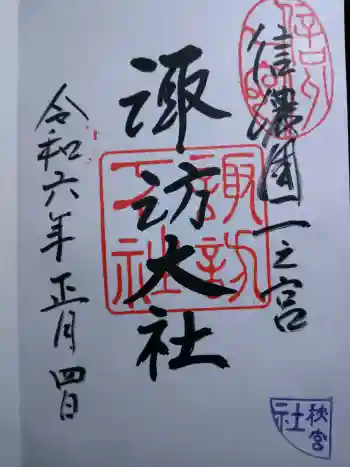 信濃國一之宮
諏訪大社
令和六年正月四日
諏訪大社
秋宮
社